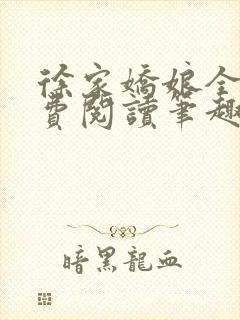 徐家嬌娘全
費閱讀筆趣
暗黑龍血